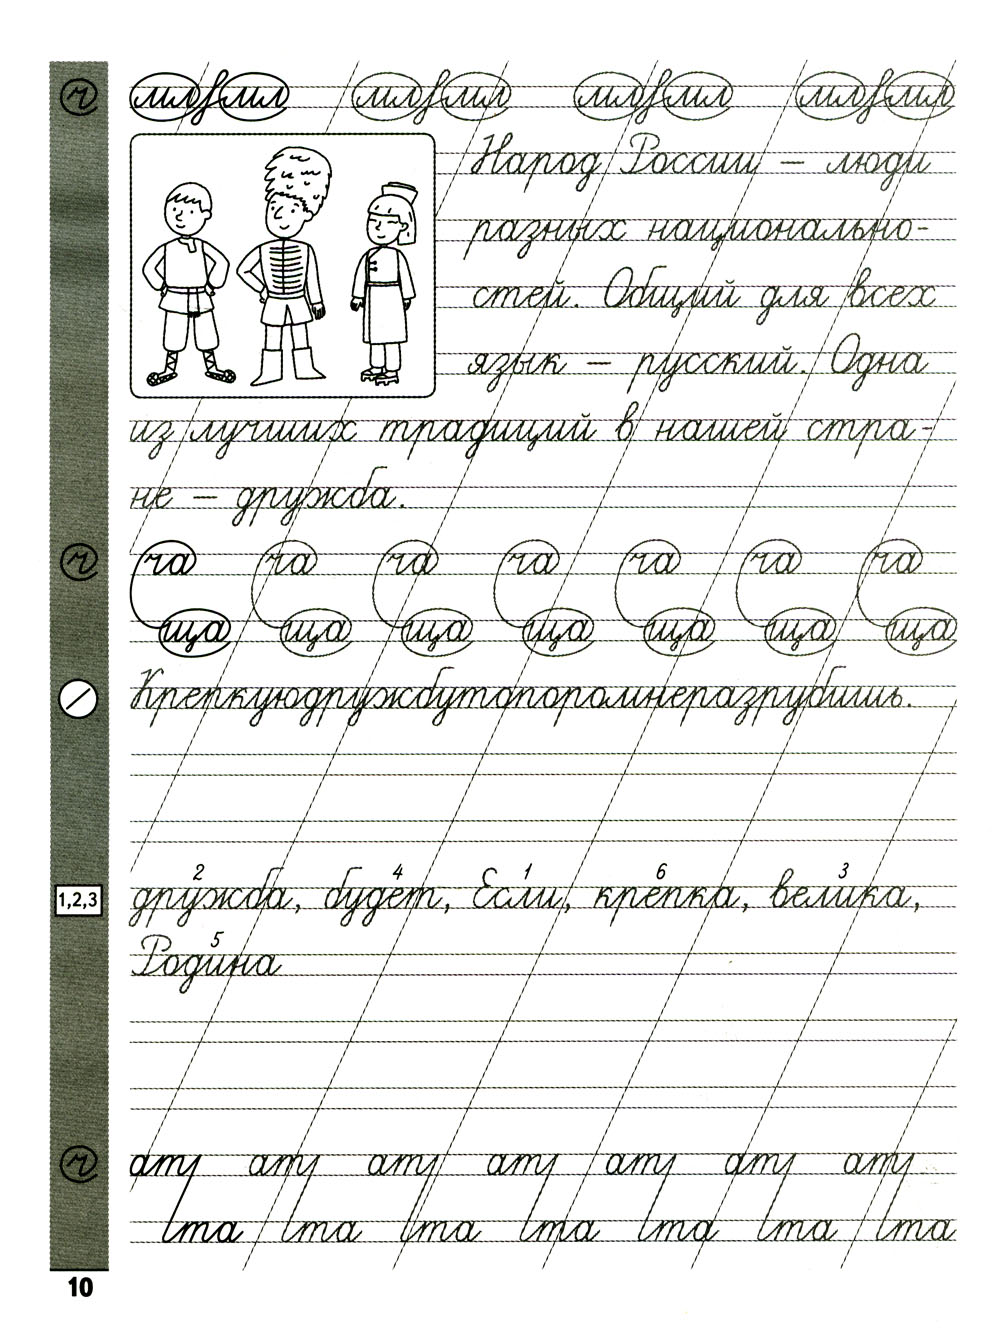 ч
мл мл мл мл мл мл мл мл
Народ России – люди
разных национально-
стей. Общий для всех
язык – русский. Одна
из лучших традиций в нашей стра-
не – дружба.
ч
ча ча ча ча ча ча ча
ща ща ща ща ща ща ща
Крепкуюдружбутопоромнеразрубишь.
2 4 1 6 3
1,2,3
дружба, будет, Если, крепка, велика,
5
Родина
ч
ат ат ат ат ат ат ат
та та та та та та та
10